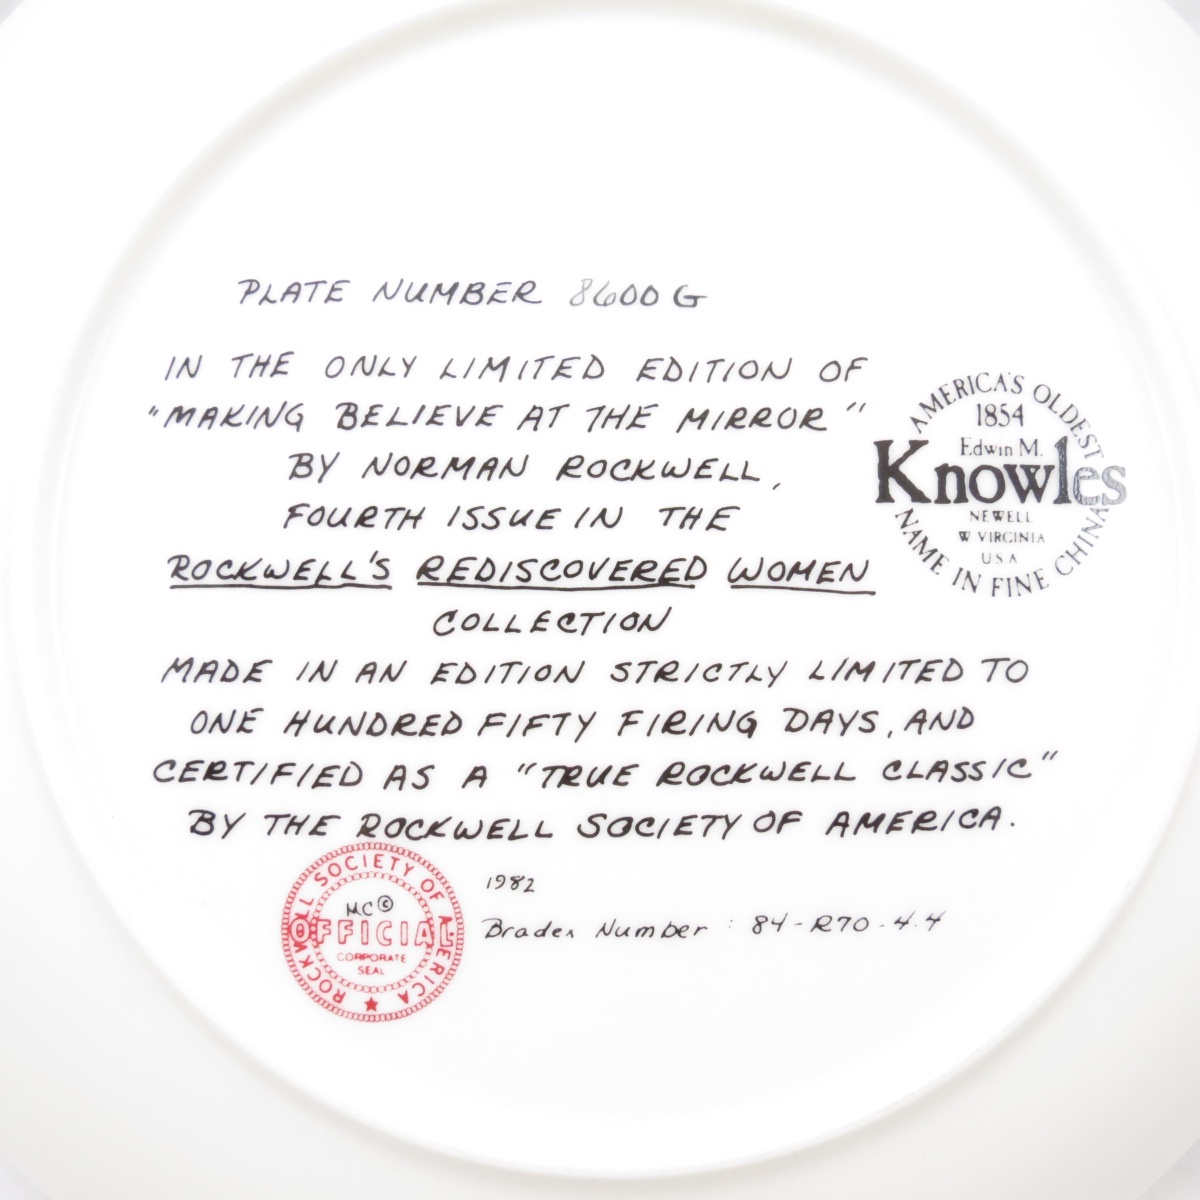 PLATE NUMBER 8600 G
IN THE ONLY LIMITED EDITION OF
"MAKING BELIEVE AT THE MIRROR"
BY NORMAN ROCKWELL,
FOURTH ISSUE IN THE
ROCKWELL'S REDISCOVERED WOMEN
COLLECTION
MADE IN AN EDITION STRICTLY LIMITED TO
ONE HUNDRED FIFTY FIRING DAYS, AND
CERTIFIED AS A "TRUE ROCKWELL CLASSIC"
BY THE ROCKWELL SOCIETY OF AMERICA.
AMERICA'S OLDEST
1854
Edwin M.
Knowles
NEWELL
W VIRGINIA
USA
NAME IN FINE CHINA
ROCKWELL SOCIETY OF AMERICA
MC©
OFFICIAL
CORPORATE
SEAL
1982
Bradex Number : 84-R70-4.4